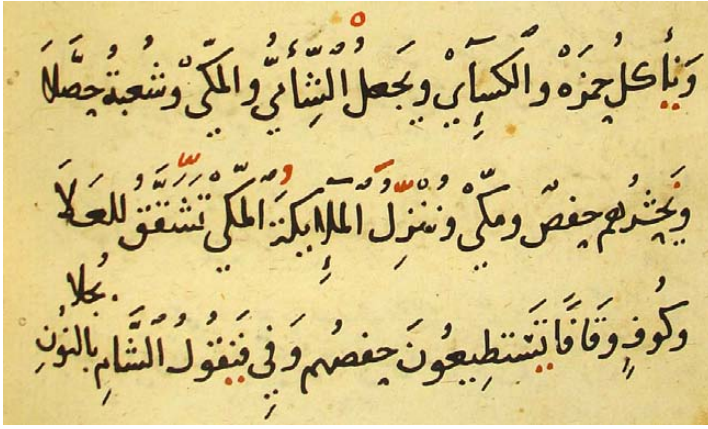 وَنأكلُ حمزَهْ والكسآئِيْ ويَجعلُ الشَّأميُّ والمكيّْ وشُعبةُ حصَّلَا
ويَحشرُهم حفصٌ ومكّيْ ونُنْزِلُ المَلآئِكةَ المكّيْ تَشَّقَّقُ للعَلَا
وكُوفٍ وَقَافًا تَستطِيعُونَ حفصُهم وَفِي فَيَقُولُ الشَّامِ بالنُونِ يُجلا